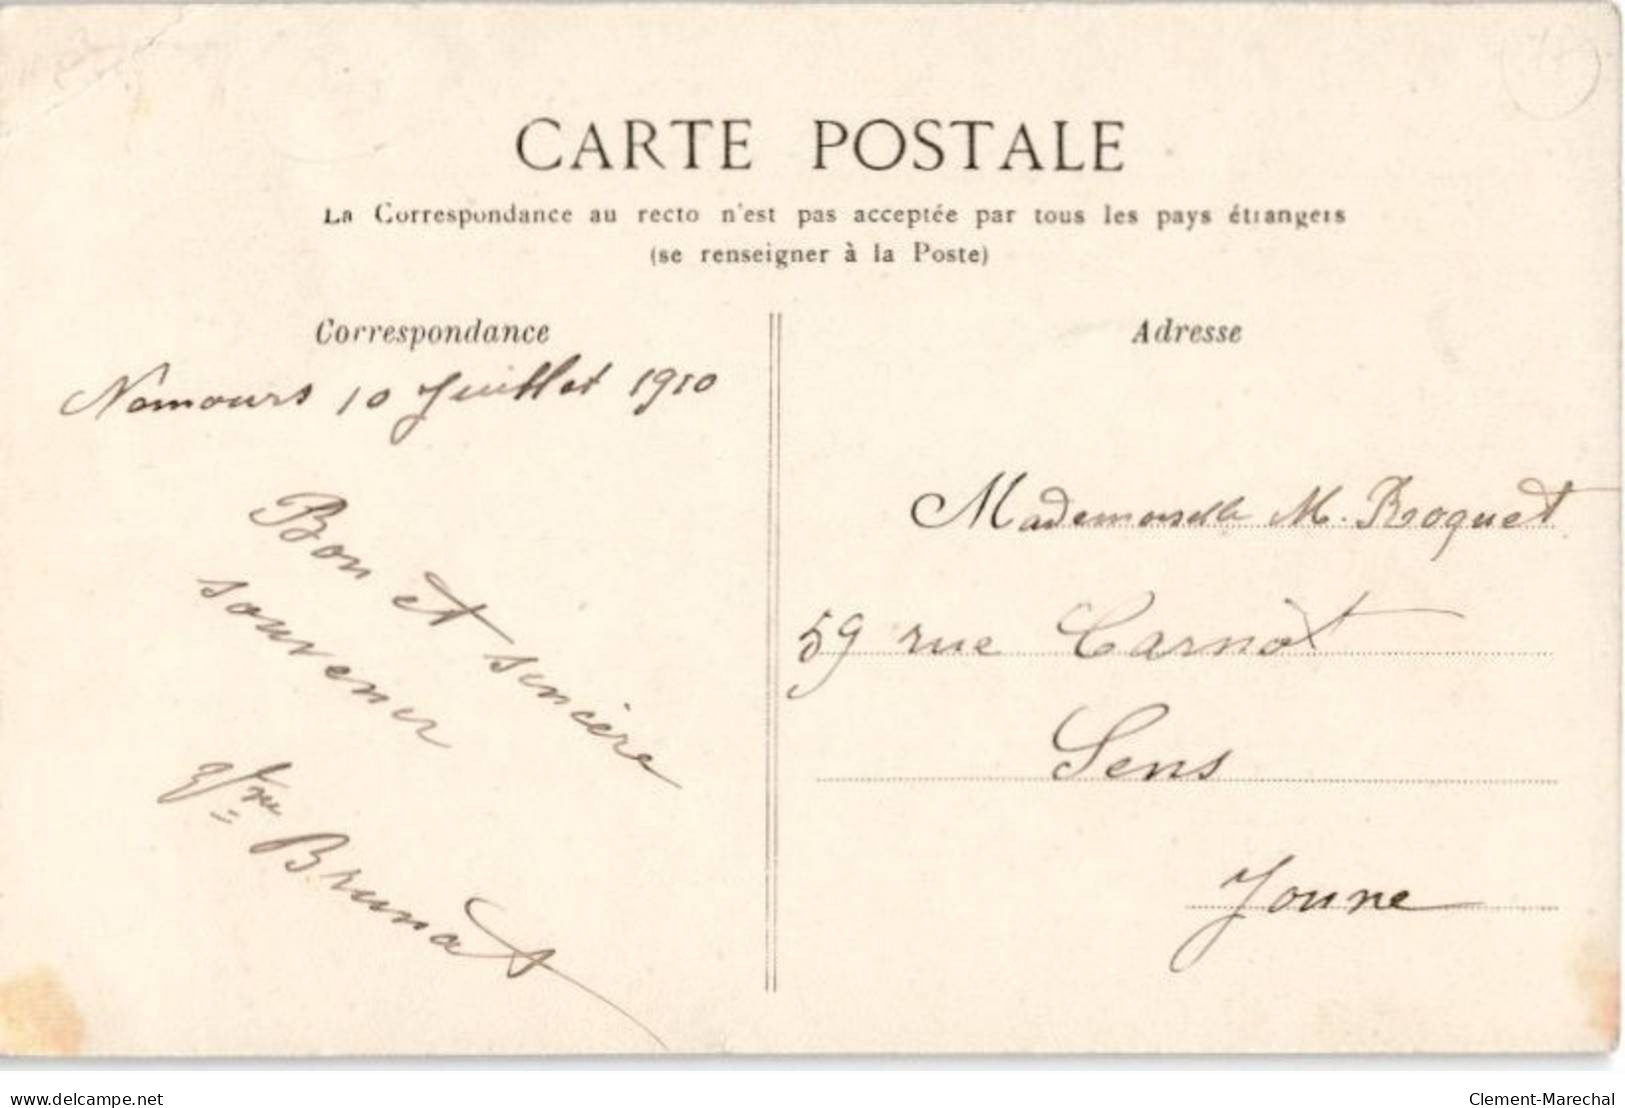 CARTE POSTALE
La Correspondance au recto n'est pas acceptée par tous les pays étrangers
(se renseigner à la Poste)
Correspondance
Nemours 10 Juillet 1910
Bon et sincère
souvenir
Brunat
Adresse
Mademoiselle M. Roquet
59 rue Carnot
Sens
Yonne
delcampe.net
Clement-Marechal